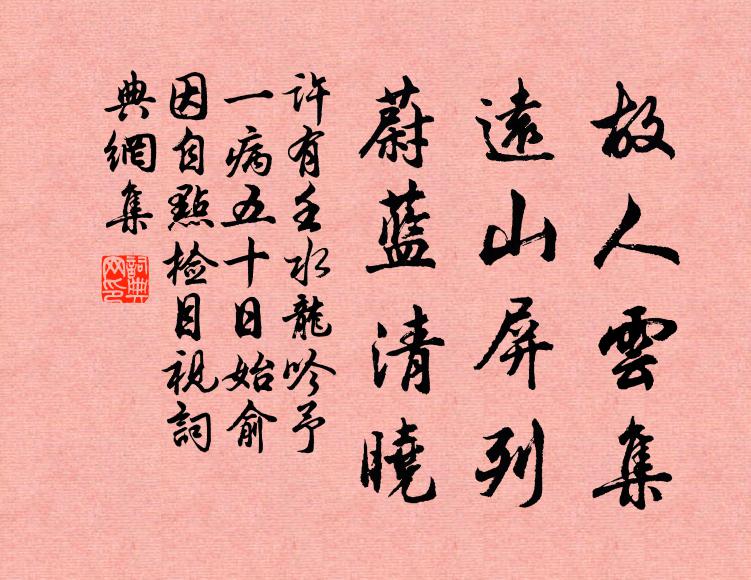 故人雲集
遠山屏列
蔚藍清曉
許有壬水龍吟予
一病五十日始俞
因自點檢目視詞
典網集
詞典網印